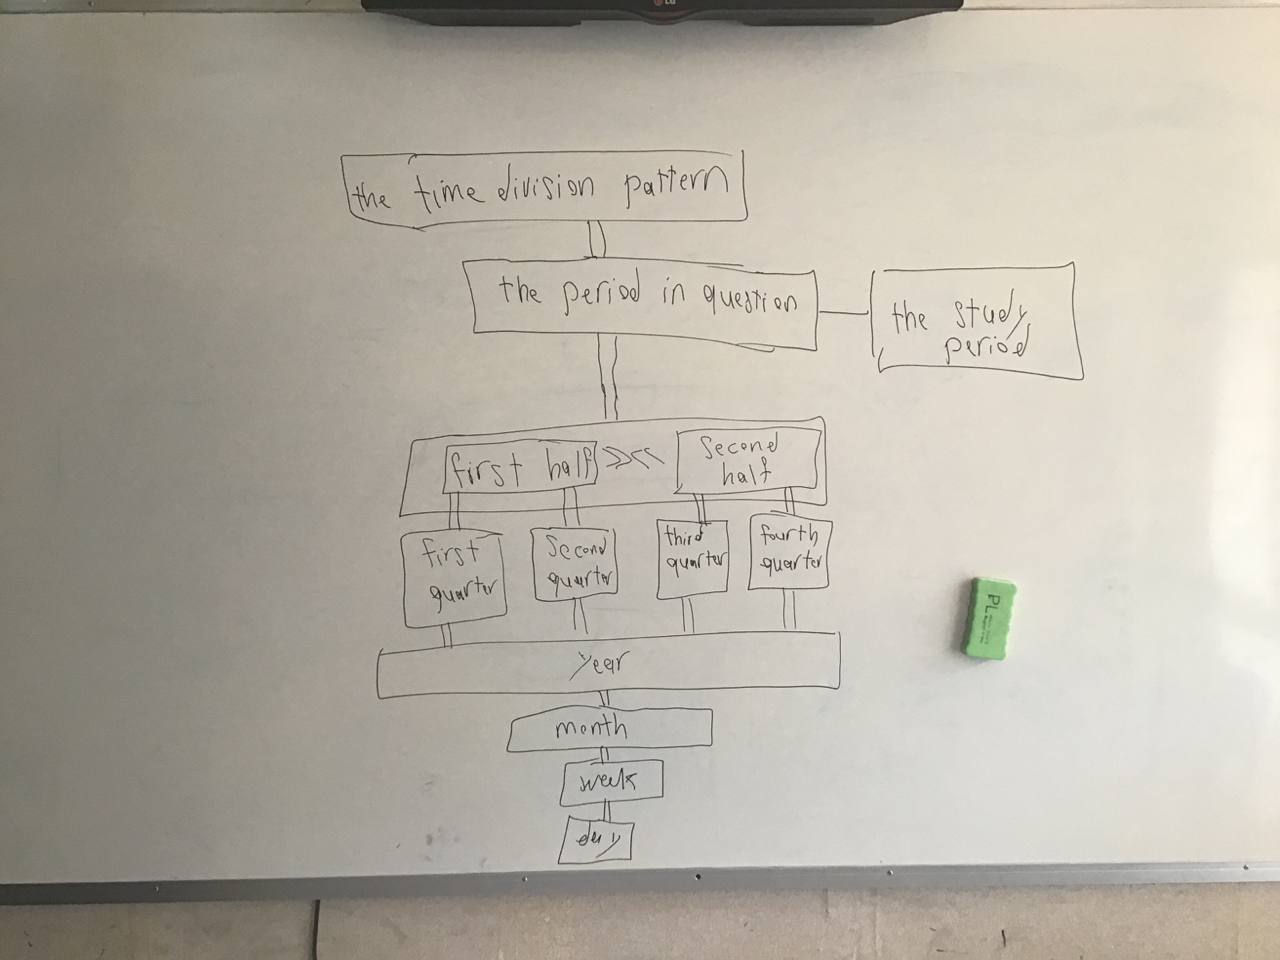 LG
the time division pattern
the period in question
the study
period
first half >><< second
half
first
quarter
second
quarter
third
quarter
fourth
quarter
year
month
week
day
PL